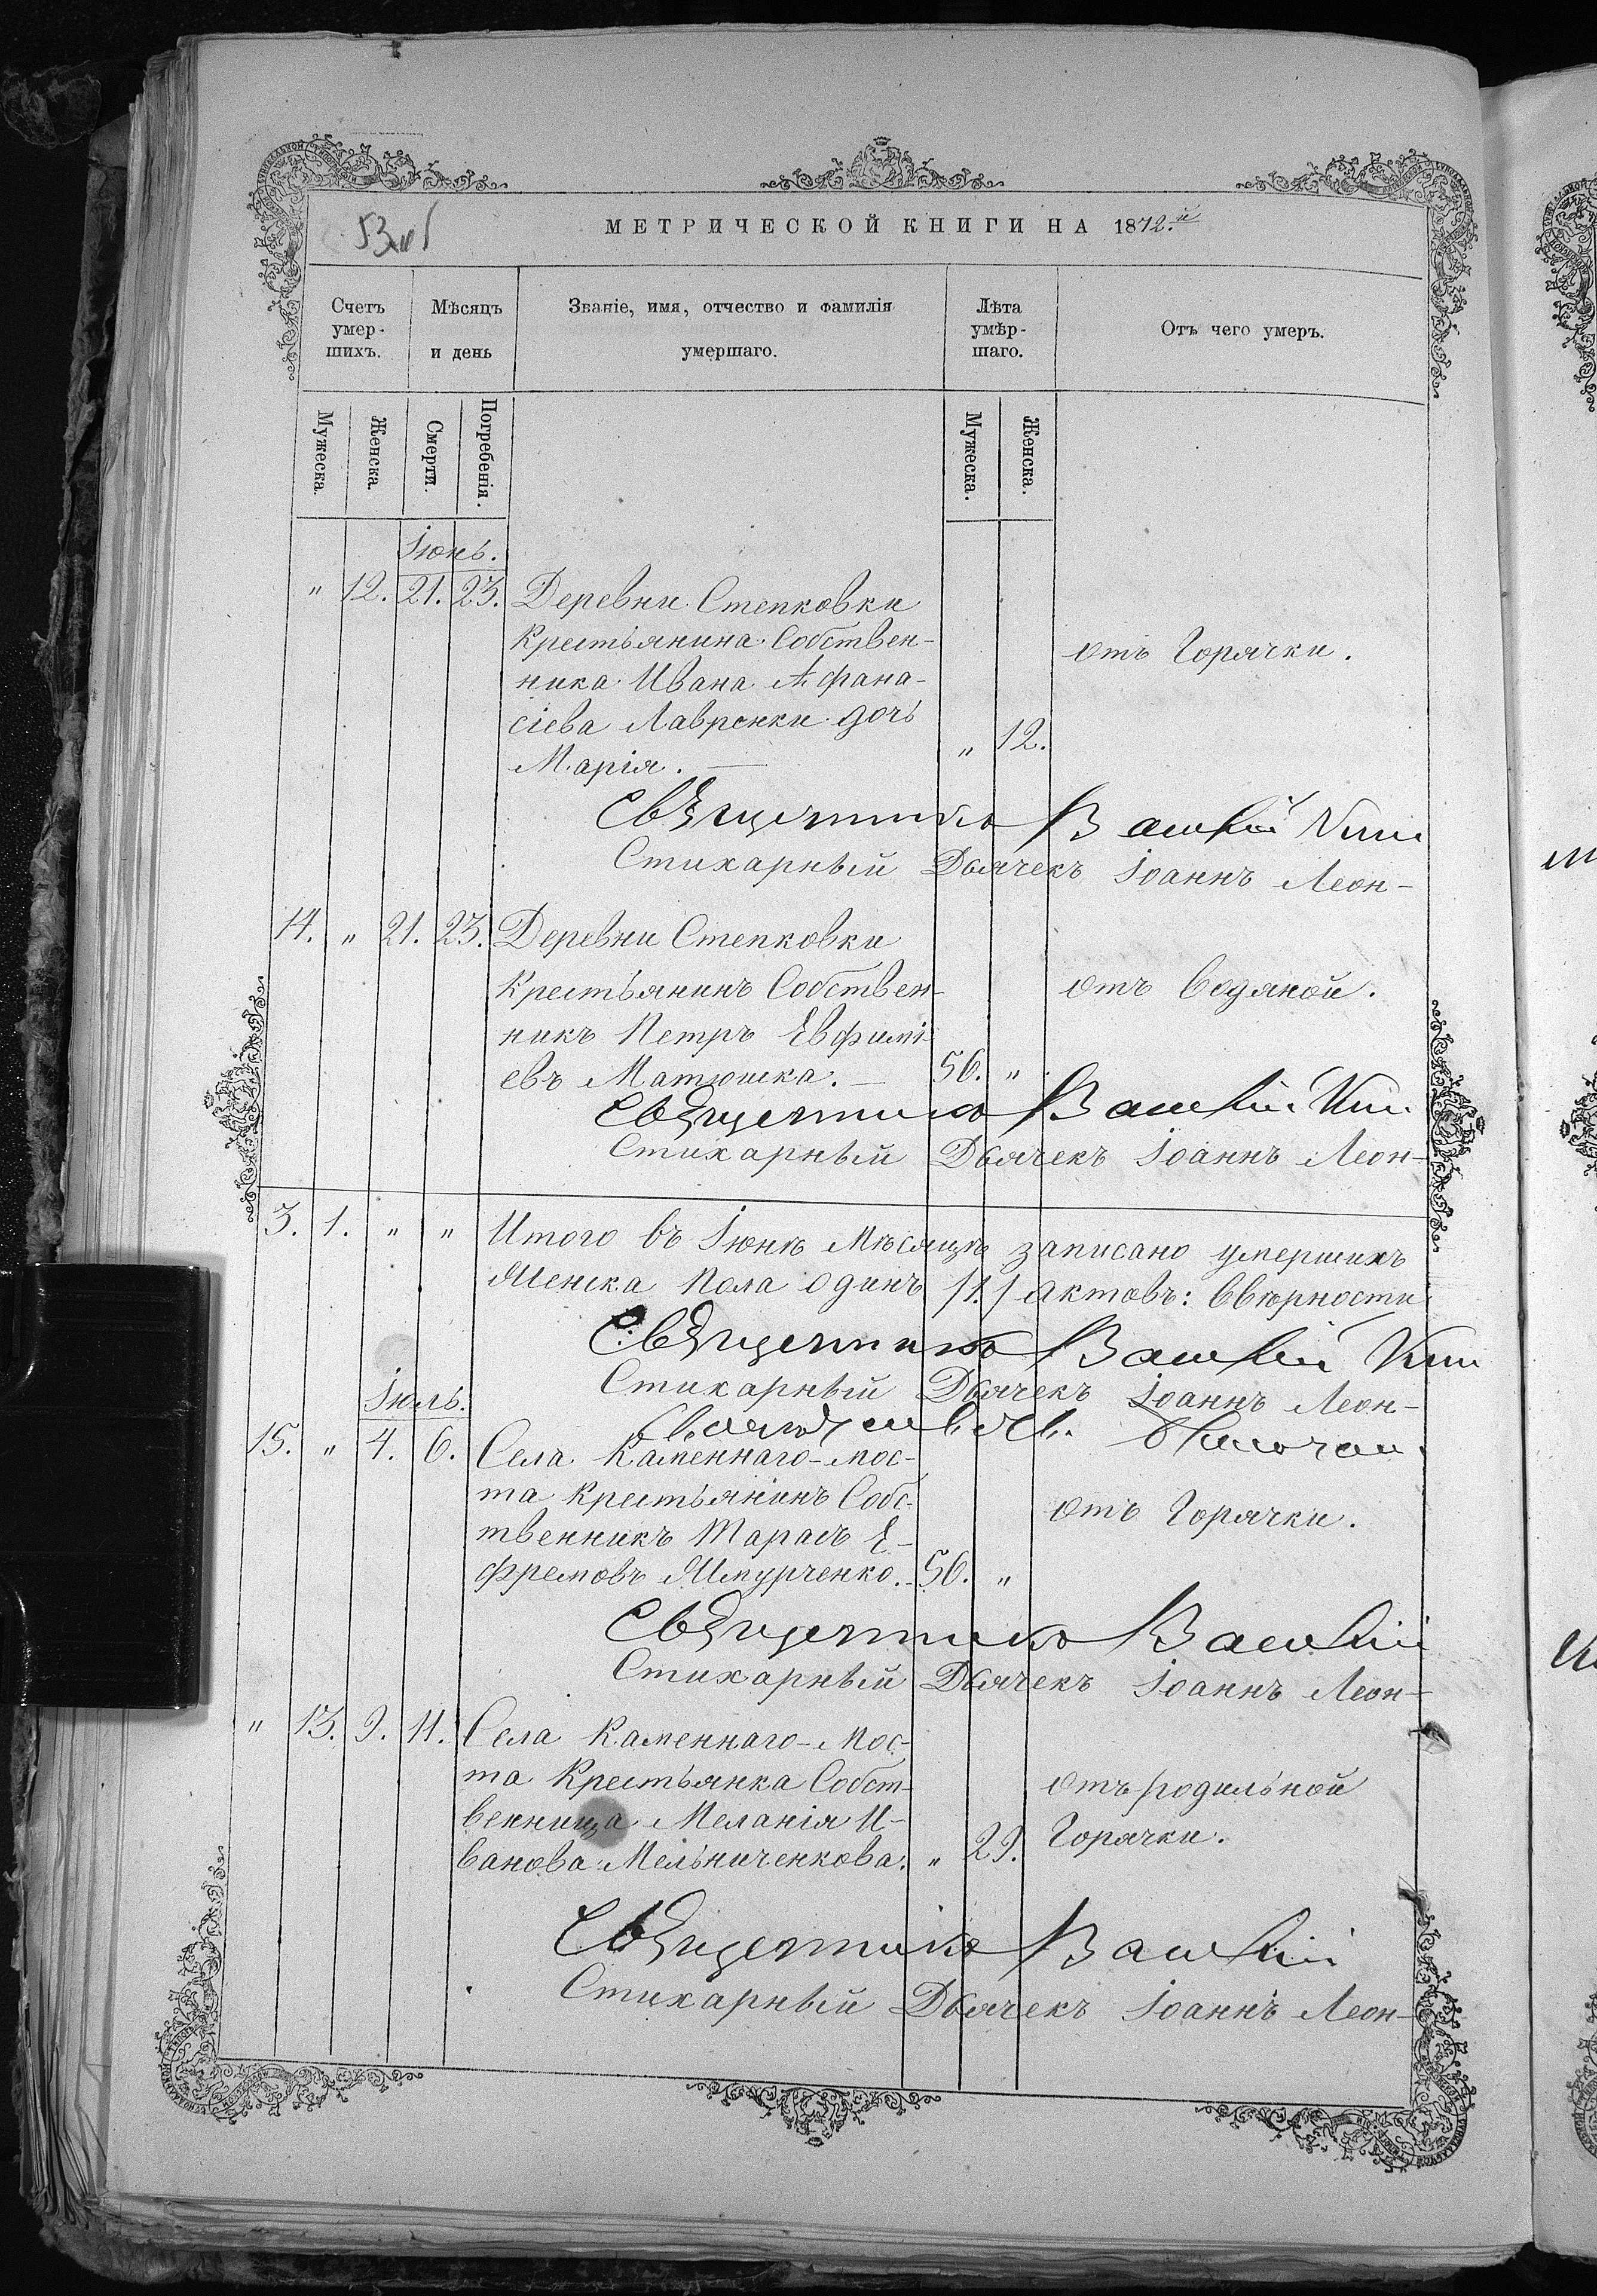 МЕТРИЧЕСКОЙ КНИГИ НА 1872.й
Счетъ умер- шихъ.
Мѣсяцъ и день
Званіе, имя, отчество и фамилія умершаго.
Лѣта умѣр- шаго.
Отъ чего умеръ.
Мужеска. Женска. Смерти. Погребенія. Мужеска. Женска.
Іюнь.
" 12. 21. 23. Деревни Степковки
Крестьянина Собствен-
ника Ивана Афана- отъ Горячки.
сіева Лавренки дочь
Марія. — " 12.
Священникъ Василій
Стихарный Дьячекъ Іоаннъ Леон-
14. " 21. 23. Деревни Степковки
Крестьянинъ Собствен- отъ Водяной.
никъ Петръ Евфимі-
евъ Матюшка. — 56. "
Священникъ Василій
Стихарный Дьячекъ Іоаннъ Леон-
3. 1. " " Итого въ Іюнѣ Мѣсяцѣ записано умершихъ
Женска Пола одинъ /1./ актовъ: Ввѣрности
Священникъ Василій
Стихарный Дьячекъ Іоаннъ Леон-
Іюль.
15. " 4. 6. Села Каменнаго-мос-
та Крестьянинъ Собс- отъ Горячки.
твенникъ Тарасъ Е-
фремовъ Шпурченко. 56. "
Священникъ Василій
Стихарный Дьячекъ Іоаннъ Леон-
" 13. 9. 11. Села Каменнаго-Мос-
та Крестьянка Собст- отъ родильной
венница Меланія И- Горячки.
ванова Мельниченкова. " 29.
Священникъ Василій
Стихарный Дьячекъ Іоаннъ Леон-